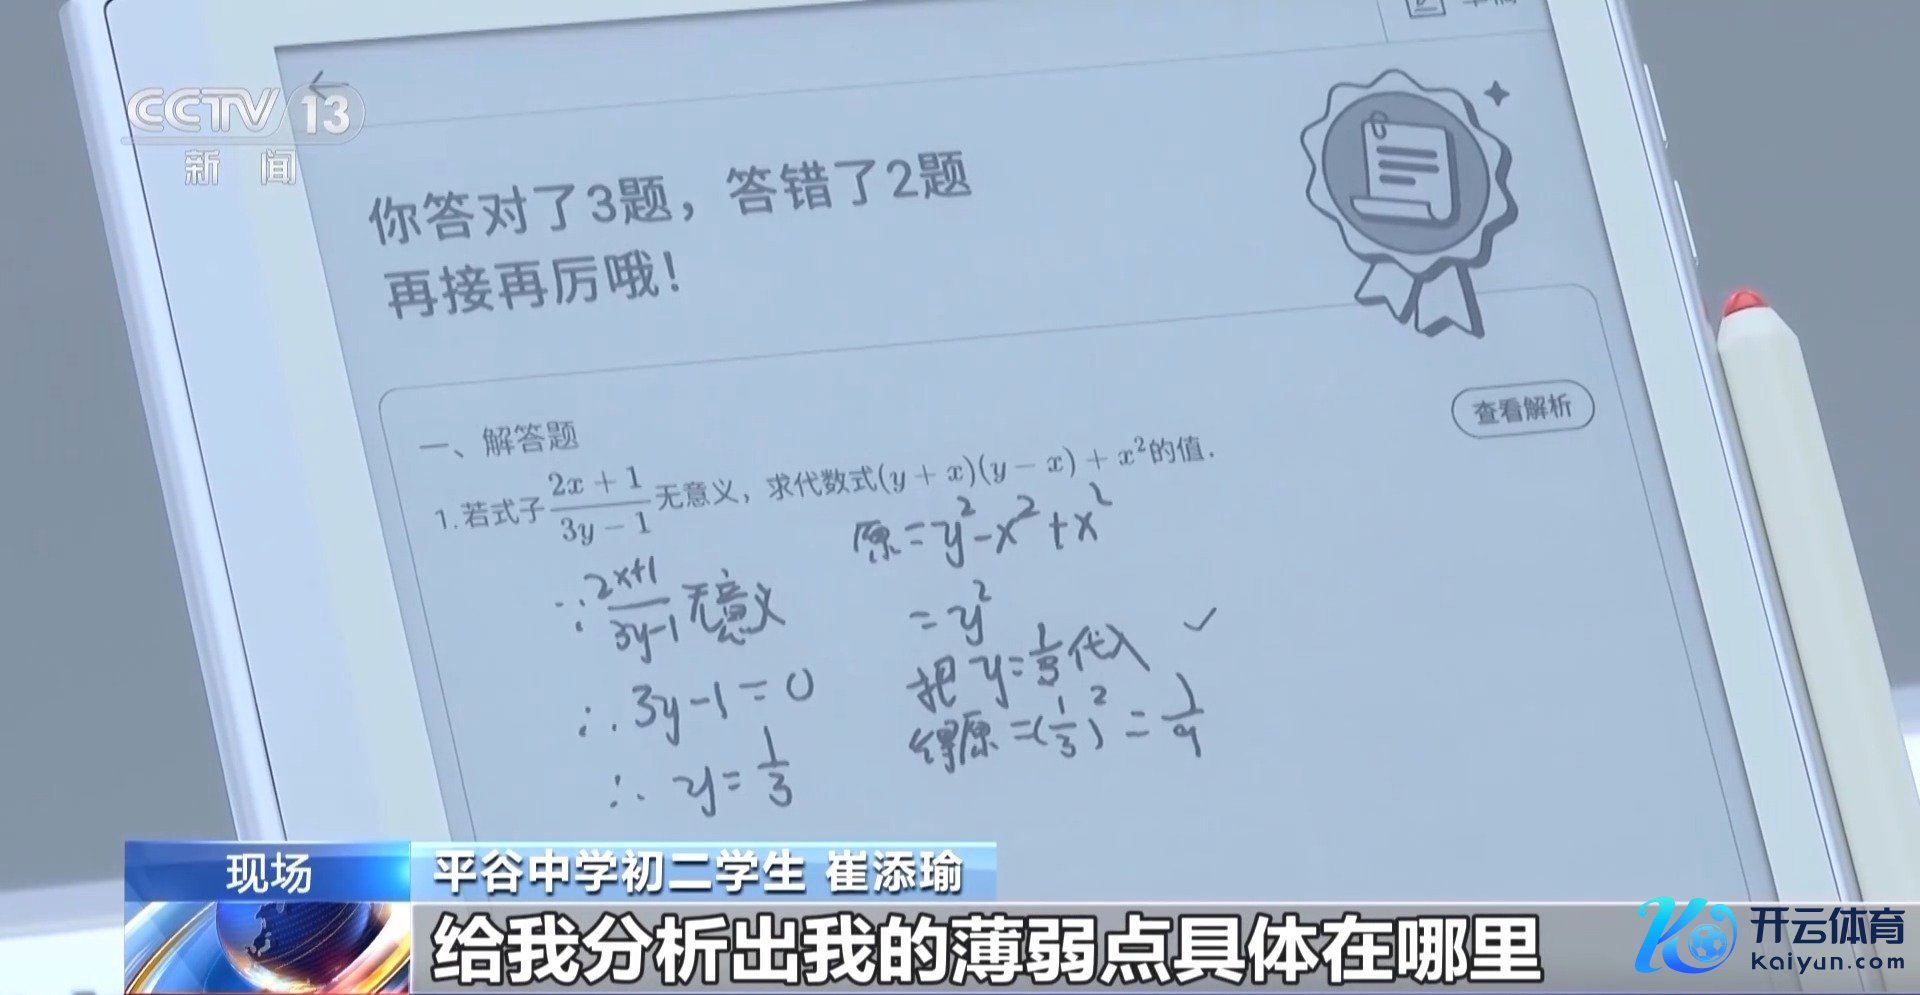 CCTV 13
新闻
你答对了3题，答错了2题
再接再厉哦！
查看解析
一、解答题
1.若式子\frac{2x+1}{3y-1}无意义，求代数式(y+x)(y-x)+x²的值.
∵\frac{2x+1}{3y-1}无意义
∴3y-1=0
∴y=\frac{1}{3}
原=y²-x²+x²
=y²
把y=\frac{1}{3}代入 ✓
得原=(\frac{1}{3})²=\frac{1}{9}
现场
平谷中学初二学生 崔添瑜
给我分析出我的薄弱点具体在哪里
开云体育
kaiyun.com